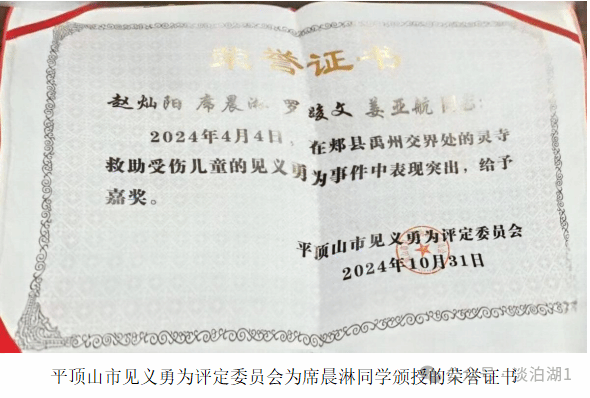 荣誉证书
赵灿阳 席晨淋 罗峻文 姜亚航同志:
2024年4月4日，在郏县禹州交界处的灵寺
救助受伤儿童的见义勇为事件中表现突出，给予
嘉奖。
平顶山市见义勇为评定委员会
2024年10月31日
平顶山市见义勇为评定委员会为席晨淋同学颁授的荣誉证书
淡泊湖1